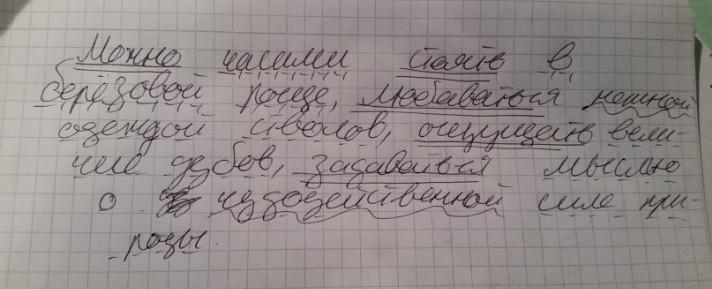 Можно часами стоять в
берёзовой роще, любаваться нежной
одеждой стволов, ощущать вели-
чие дубов, задаваться мыслью
о чудодейственной силе при-
роды.